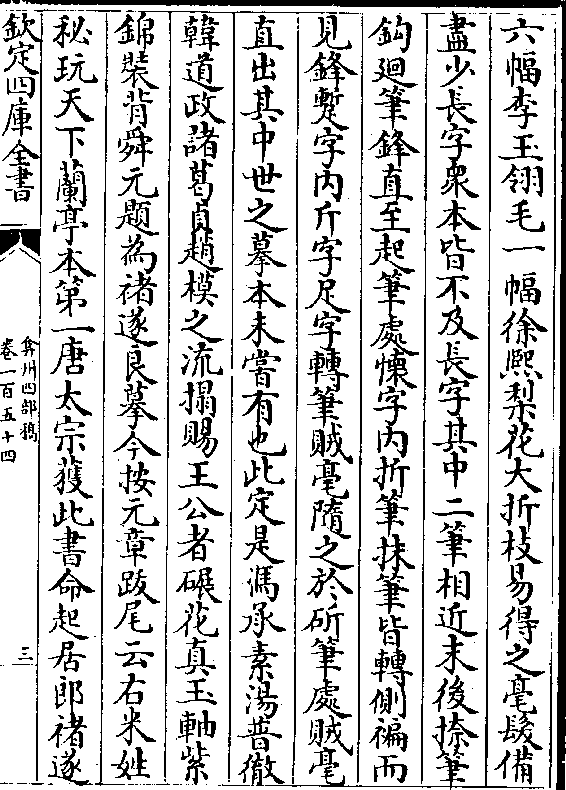 六幅李王翎毛一幅徐熙梨花大折枝易得之毫髮備
盡少長字衆本皆不及長字其中二筆相近末後捺筆
鈎廻筆鋒直至起筆處懐字内折筆抹筆皆轉側褊而
見鋒蹔字内斤字足字轉筆賊毫隨之於斫筆處賊毫
直出其中世之摹本未嘗有也此定是馮承素湯普徹
韓道政諸葛貞趙模之流搨賜王公者碾花真玉軸紫
錦裝背舜元題為褚遂良摹今按元章跋尾云右米姓
秘玩天下蘭亭本第一唐太宗獲此書命起居郎褚遂
欽定四庫全書
弇州四部稿
卷一百五十四
三